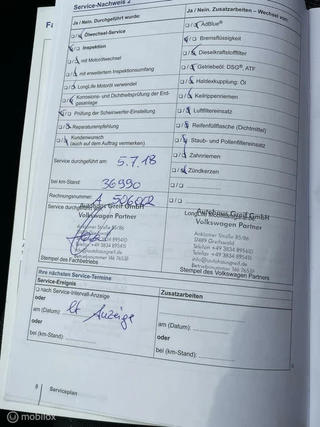 Service-Nachweis 2
Ja / Nein. Durchgeführt wurde:
Ölwechsel-Service
Inspektion
mit Motorölwechsel
mit erweitertem Inspektionsumfang
LongLife Motoröl verwendet
Korrosions- und Dichtheitsprüfung der Erdgasanlage
Prüfung der Scheinwerfer-Einstellung
Reparaturempfehlung
Kundenwunsch
(auch auf dem Auftrag vermerken).
Service durchgeführt am: 5.7.18
bei km-Stand: 36990
Rechnungsnummer: A 506002
Service durchgeführt
Autohaus Greif GmbH
Volkswagen Partner
Anklamer Straße 85/86
Stempel des Fachbetriebs
Ja / Nein. Zusatzarbeiten – Wechsel von:
AdBlue®
Bremsflüssigkeit
Dieselkraftstofffilter
Getriebeöl: DSG®, ATF
Haldexkupplung: Öl
Keilrippenriemen
Luftfiltereinsatz
Reifenfüllflasche (Dichtmittel)
Staub- und Pollenfiltereinsatz
Zahnriemen
Zündkerzen
Autohaus Greif GmbH
Volkswagen Partner
Anklamer Straße 85/86
Greifswald
Telefon
Telefax
Stempel des Volkswagen Partners
Ihre nächsten Service-Termine
Service-Ereignis
nach Service-Intervall-Anzeige
oder
lt Anzeige
am (Datum):
oder
bei (km-Stand):
Zusatzarbeiten
am (Datum):
oder
bei (km-Stand):
8 Serviceplan
mobilox